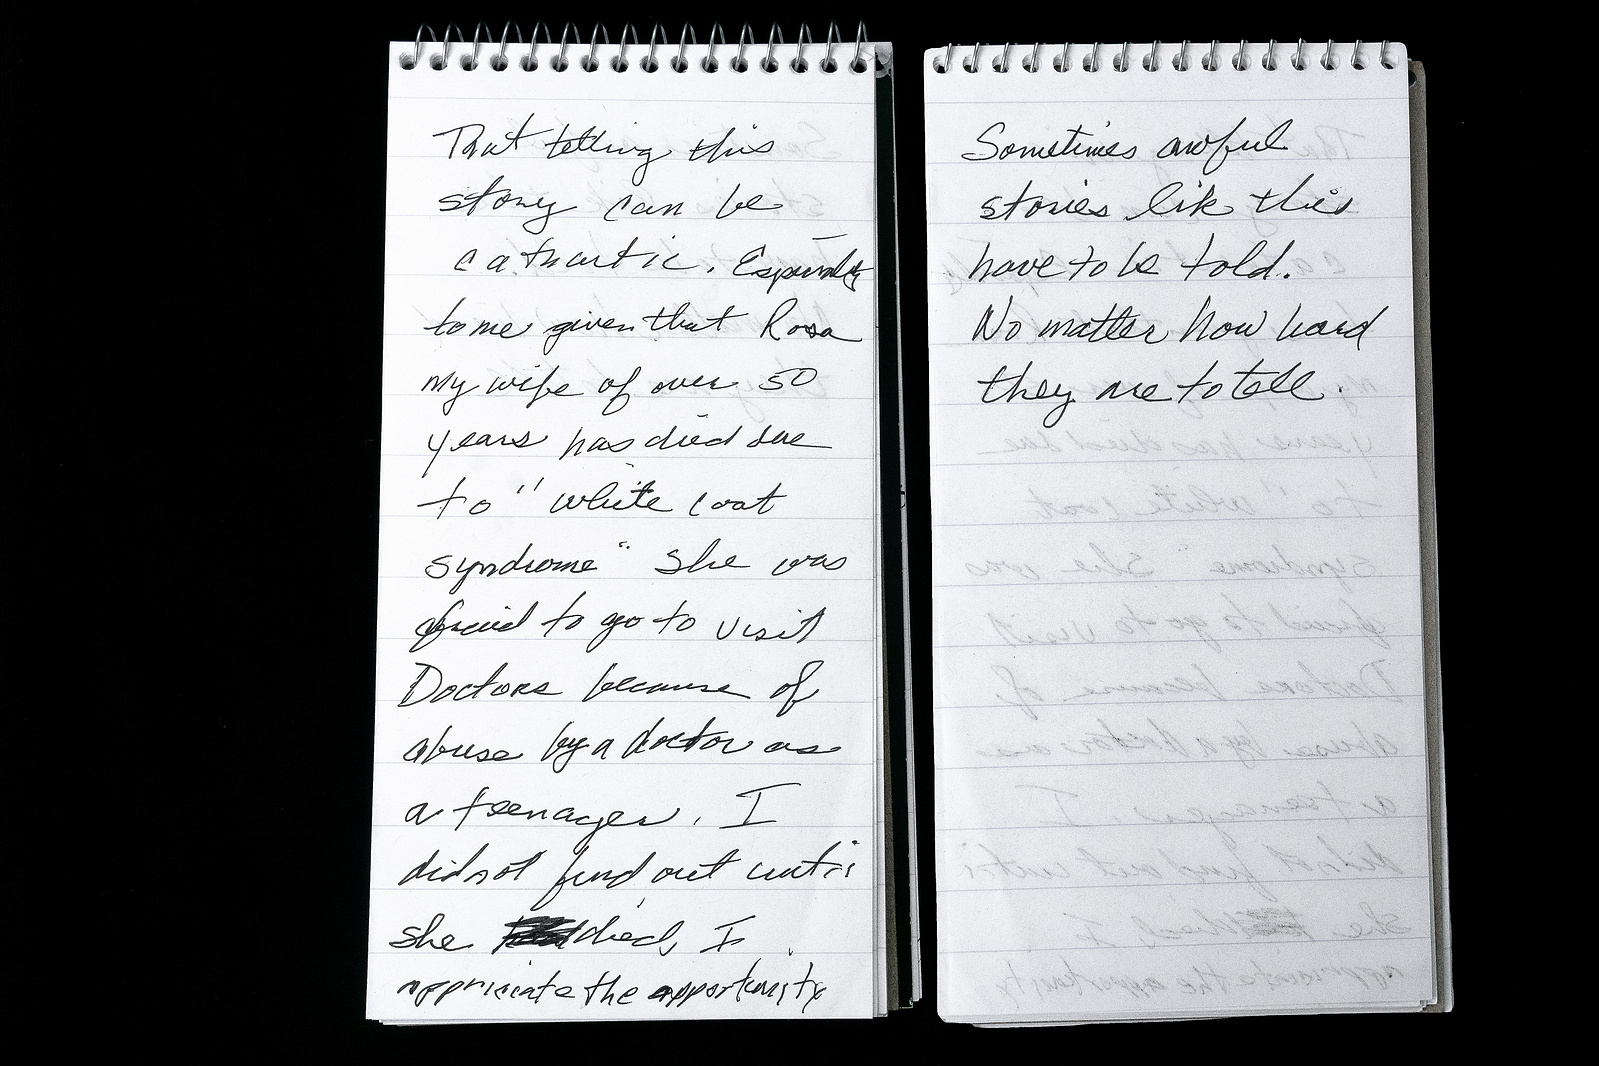 That telling this
story can be
cathartic. Especially
to me given that Rosa
my wife of over 50
years has died due
to "white coat
syndrome" she was
afraid to go to visit
Doctors because of
abuse by a doctor as
a teenager. I
did not find out until
she died, I
appriciate the opportunity
Sometimes awful
stories like this
have to be told.
No matter how hard
they are to tell.